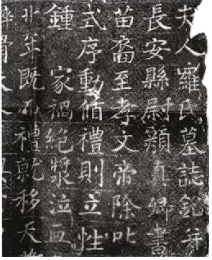 夫人羅氏墓誌銘并
長安縣尉顏真卿書
苗裔至孝文帝除叱
式序動循禮則立性
鍾家禍絕漿泣血
年既禮就移天